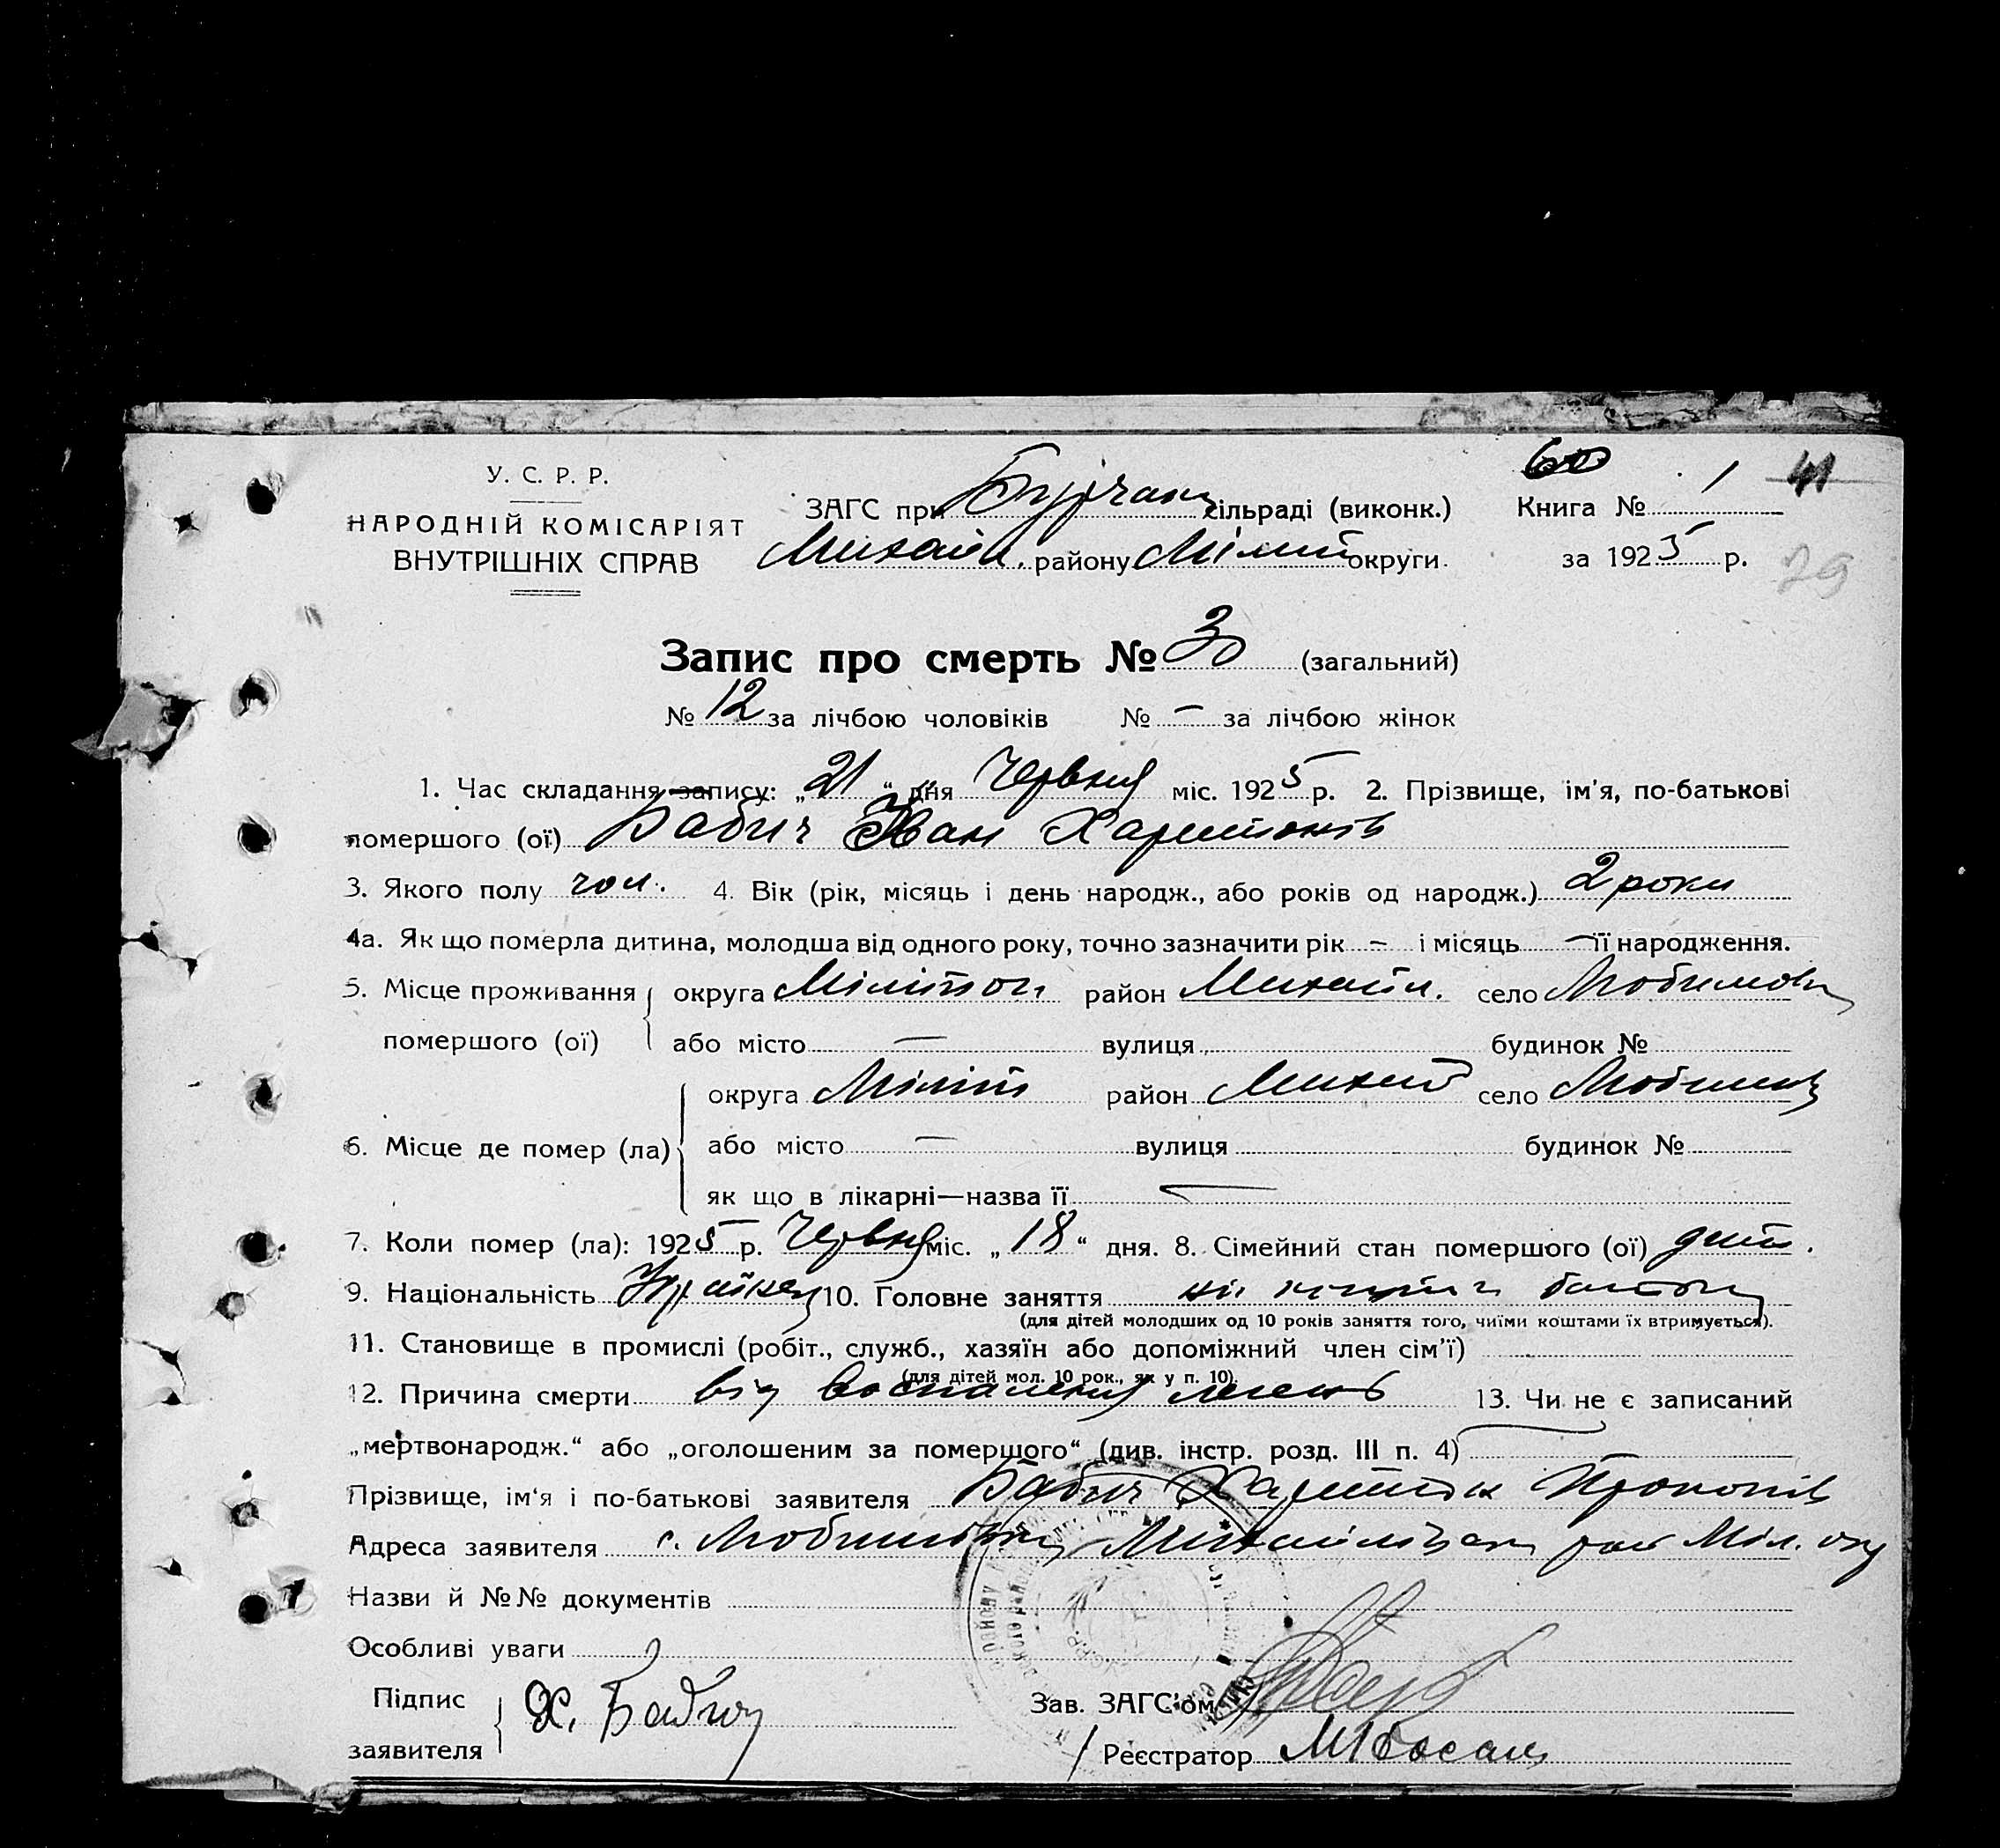 60 41
У. С. Р. Р.
НАРОДНІЙ КОМІСАРІЯТ
ВНУТРІШНІХ СПРАВ
ЗАГС при Бурчац сільраді (виконк.)
Михайл. району Міліт округи.
Книга № 1
за 1925 р.
79
Запис про смерть № 30 (загальний)
№ 12 за лічбою чоловіків № – за лічбою жінок
1. Час складання запису: „21“ дня Червня міс. 1925 р. 2. Прізвище, ім'я, по-батькові
помершого (ої) Бабич Іван Харитонів
3. Якого полу чол. 4. Вік (рік, місяць і день народж., або років од народж.) 2 роки
4а. Як що померла дитина, молодша від одного року, точно зазначити рік – і місяць – її народження.
5. Місце проживання помершого (ої) округа Мілітоп район Михайл. село Любимовц
або місто – вулиця будинок №
6. Місце де помер (ла) округа Міліт район Михай село
або місто – вулиця будинок №
як що в лікарні—назва її –
7. Коли помер (ла): 1925 р. Червня міс. „18“ дня. 8. Сімейний стан помершого (ої) дит.
9. Національність Українец 10. Головне заняття
(для дітей молодших од 10 років заняття того, чиїми коштами їх втримується).
11. Становище в промислі (робіт., служб., хазяїн або допоміжний член сім'ї)
(для дітей мол. 10 рок., як у п. 10).
12. Причина смерти від воспаления легень 13. Чи не є записаний
„мертвонародж.“ або „оголошеним за помершого“ (див. інстр. розд. III п. 4)
Прізвище, ім'я і по-батькові заявителя Бабич Харитон Прокопів
Адреса заявителя с. рай Міл. окр
Назви й №№ документів
Особливі уваги
Підпис заявителя Х. Бабич
Зав. ЗАГС'ом
Реєстратор